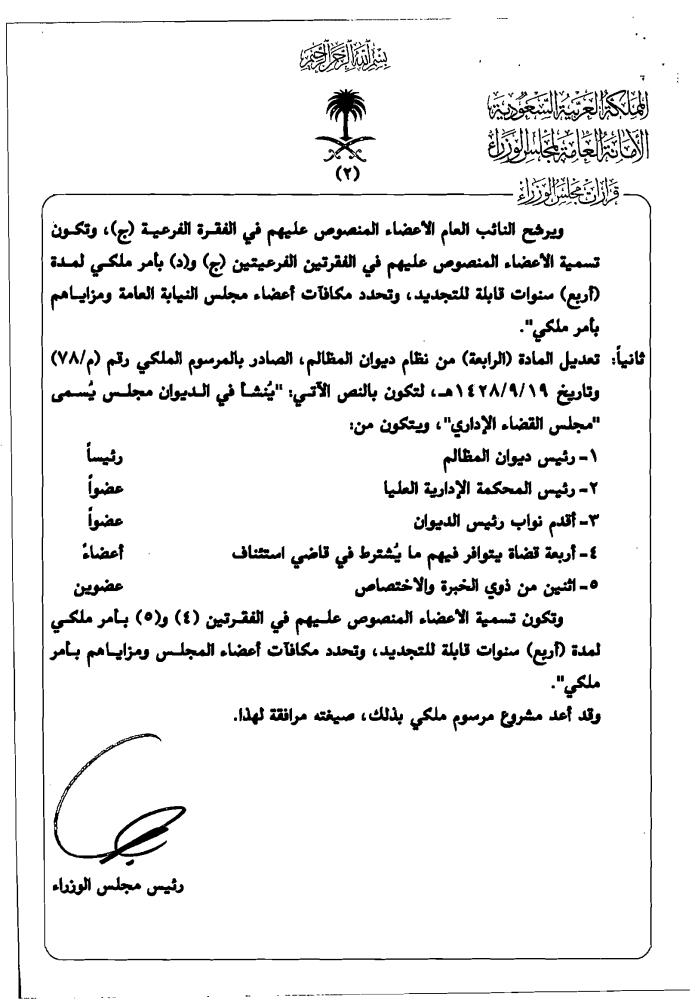 بسم الله الرحمن الرحيم
المملكة العربية السعودية
الأمانة العامة لمجلس الوزراء
(٢)
قرارات مجلس الوزراء
ويرشح النائب العام الأعضاء المنصوص عليهم في الفقرة الفرعية (ج)، وتكون
تسمية الأعضاء المنصوص عليهم في الفقرتين الفرعيتين (ج) و(د) بأمر ملكي لمدة
(أربع) سنوات قابلة للتجديد، وتحدد مكافآت أعضاء مجلس النيابة العامة ومزاياهم
بأمر ملكي".
ثانياً: تعديل المادة (الرابعة) من نظام ديوان المظالم، الصادر بالمرسوم الملكي رقم (م/٧٨)
وتاريخ ١٤٢٨/٩/١٩هـ، لتكون بالنص الآتي: "يُنشأ في الديوان مجلس يُسمى
"مجلس القضاء الإداري"، ويتكون من:
١- رئيس ديوان المظالم رئيساً
٢- رئيس المحكمة الإدارية العليا عضواً
٣- أقدم نواب رئيس الديوان عضواً
٤- أربعة قضاة يتوافر فيهم ما يُشترط في قاضي استئناف أعضاءً
٥- اثنين من ذوي الخبرة والاختصاص عضوين
وتكون تسمية الأعضاء المنصوص عليهم في الفقرتين (٤) و(٥) بأمر ملكي
لمدة (أربع) سنوات قابلة للتجديد، وتحدد مكافآت أعضاء المجلس ومزاياهم بأمر
ملكي".
وقد أعد مشروع مرسوم ملكي بذلك، صيغته مرافقة لهذا.
رئيس مجلس الوزراء